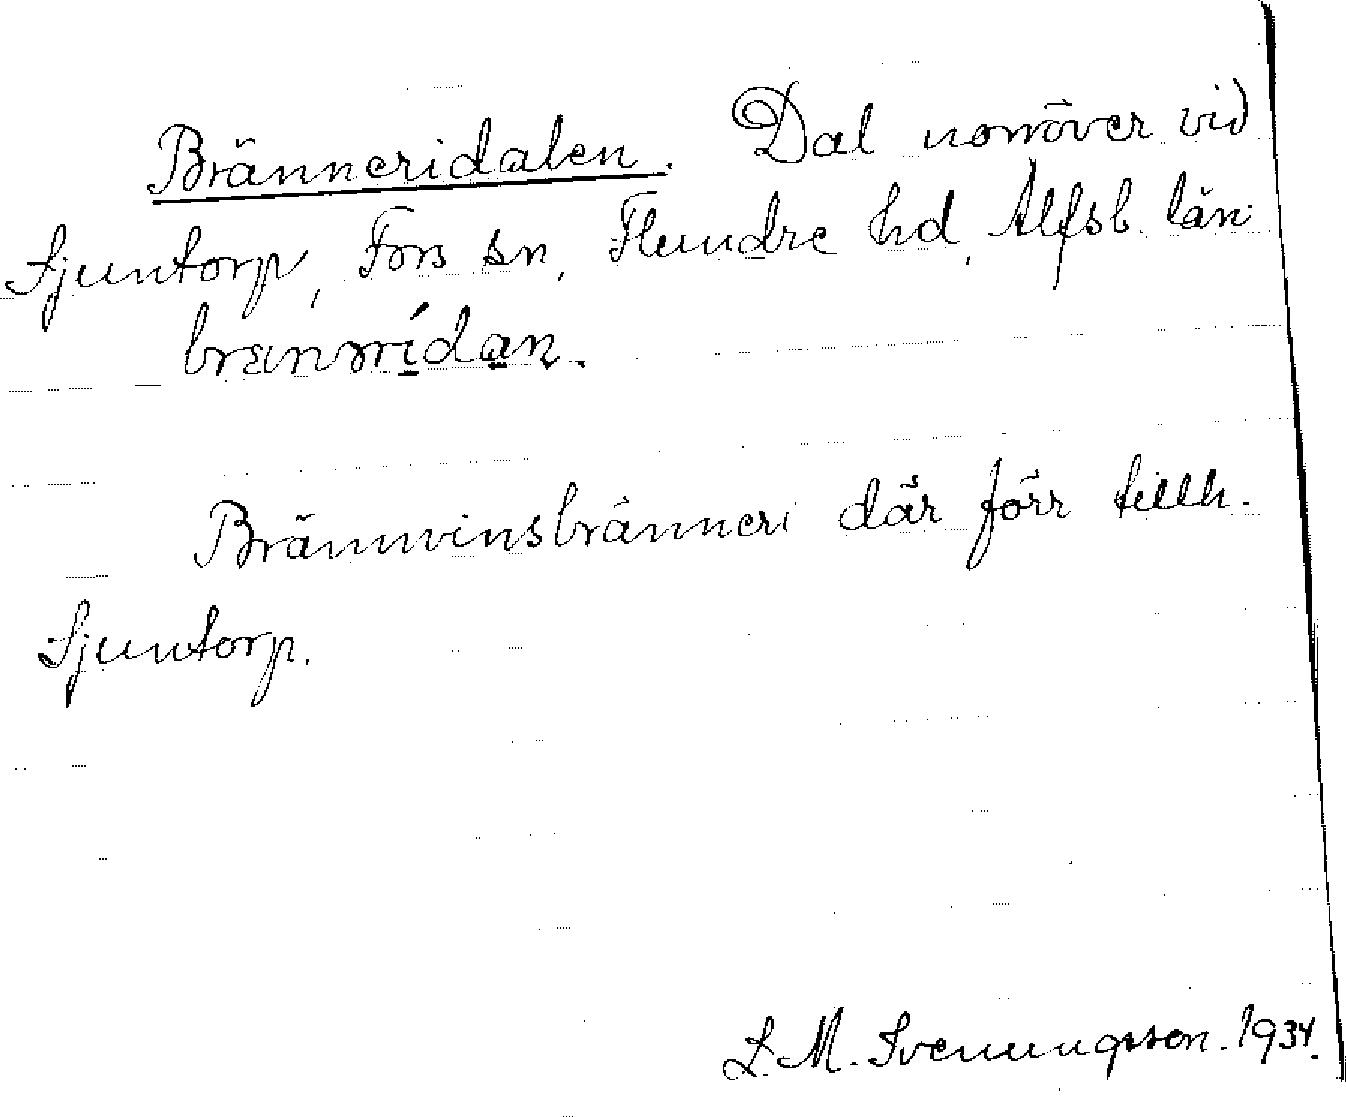 Bränneridalen. Dal norröver vid
Sjuntorp, Fors sn, Flundre hd, Älfsb. län.
Brännvinsbränneri där förr tillh.
Sjuntorp.
S. M. Svenungsson. 1934.